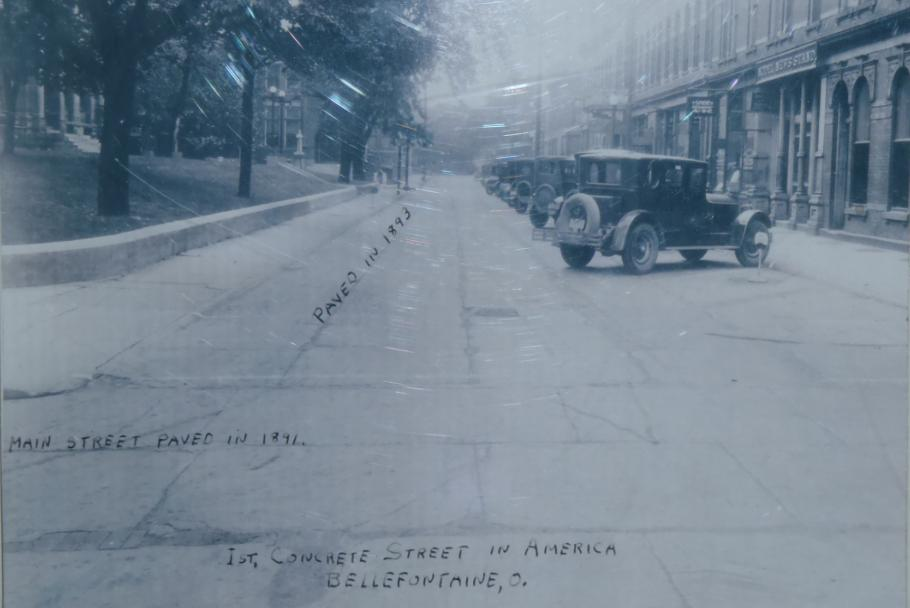 PAVED IN 1893
MAIN STREET PAVED IN 1891.
1ST, CONCRETE STREET IN AMERICA
BELLEFONTAINE, O.